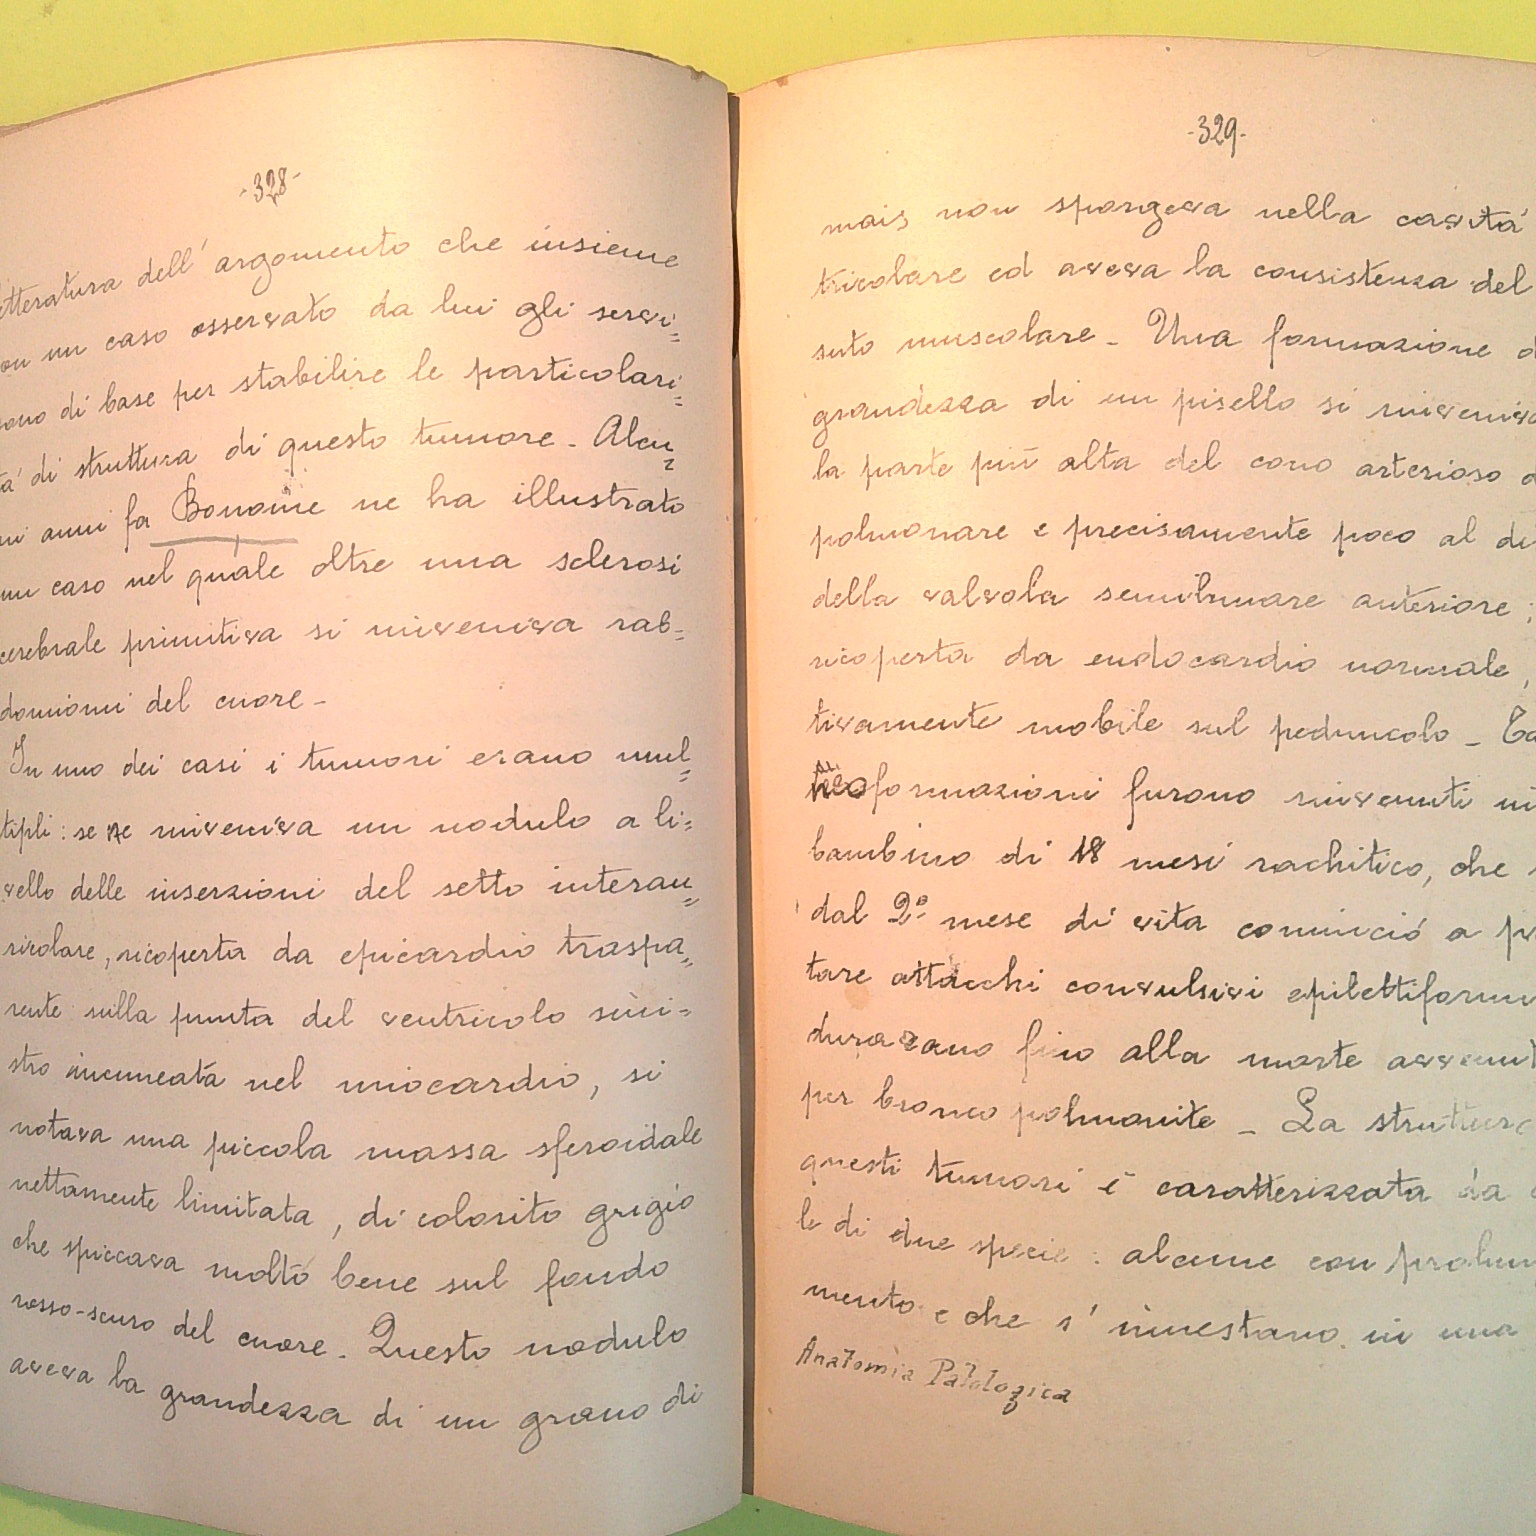 -328-
letteratura dell'argomento che insieme
con un caso osservato da lui gli servi=
rono di base per stabilire le particolari=
tà di struttura di questo tumore - Alcu=
ni anni fa Bonome ne ha illustrato
un caso nel quale oltre una sclerosi
cerebrale primitiva si rinveniva rab=
domiomi del cuore -
In uno dei casi i tumori erano mul=
tipli: se ne rinveniva un nodulo a li=
vello delle inserzioni del setto interau=
ricolare, ricoperta da epicardio traspa=
rente sulla punta del ventricolo sini=
stro incuneata nel miocardio, si
notava una piccola massa sferoidale
nettamente limitata, di colorito grigio
che spiccava molto bene sul fondo
rosso-scuro del cuore. Questo nodulo
aveva la grandezza di un grano di
-329-
mais non sporgeva nella cavità
tricolare ed aveva la consistenza del
suto muscolare - Una formazione
grandezza di un pisello si rinveniva
la parte più alta del cono arterioso
polmonare e precisamente poco al di
della valvola semilunare anteriore;
ricoperta da endocardio normale,
tivamente mobile sul peduncolo -
neoformazioni furono rinvenuti in
bambino di 18 mesi rachitico, che
dal 2º mese di vita cominciò a
tare attacchi convulsivi epilettiform
duravano fino alla morte avvenut
per bronco polmonite - La struttura
questi tumori è caratterizzata da
le di due specie: alcune con prolun
mento e che s'innestano in una
Anatomia Patologica